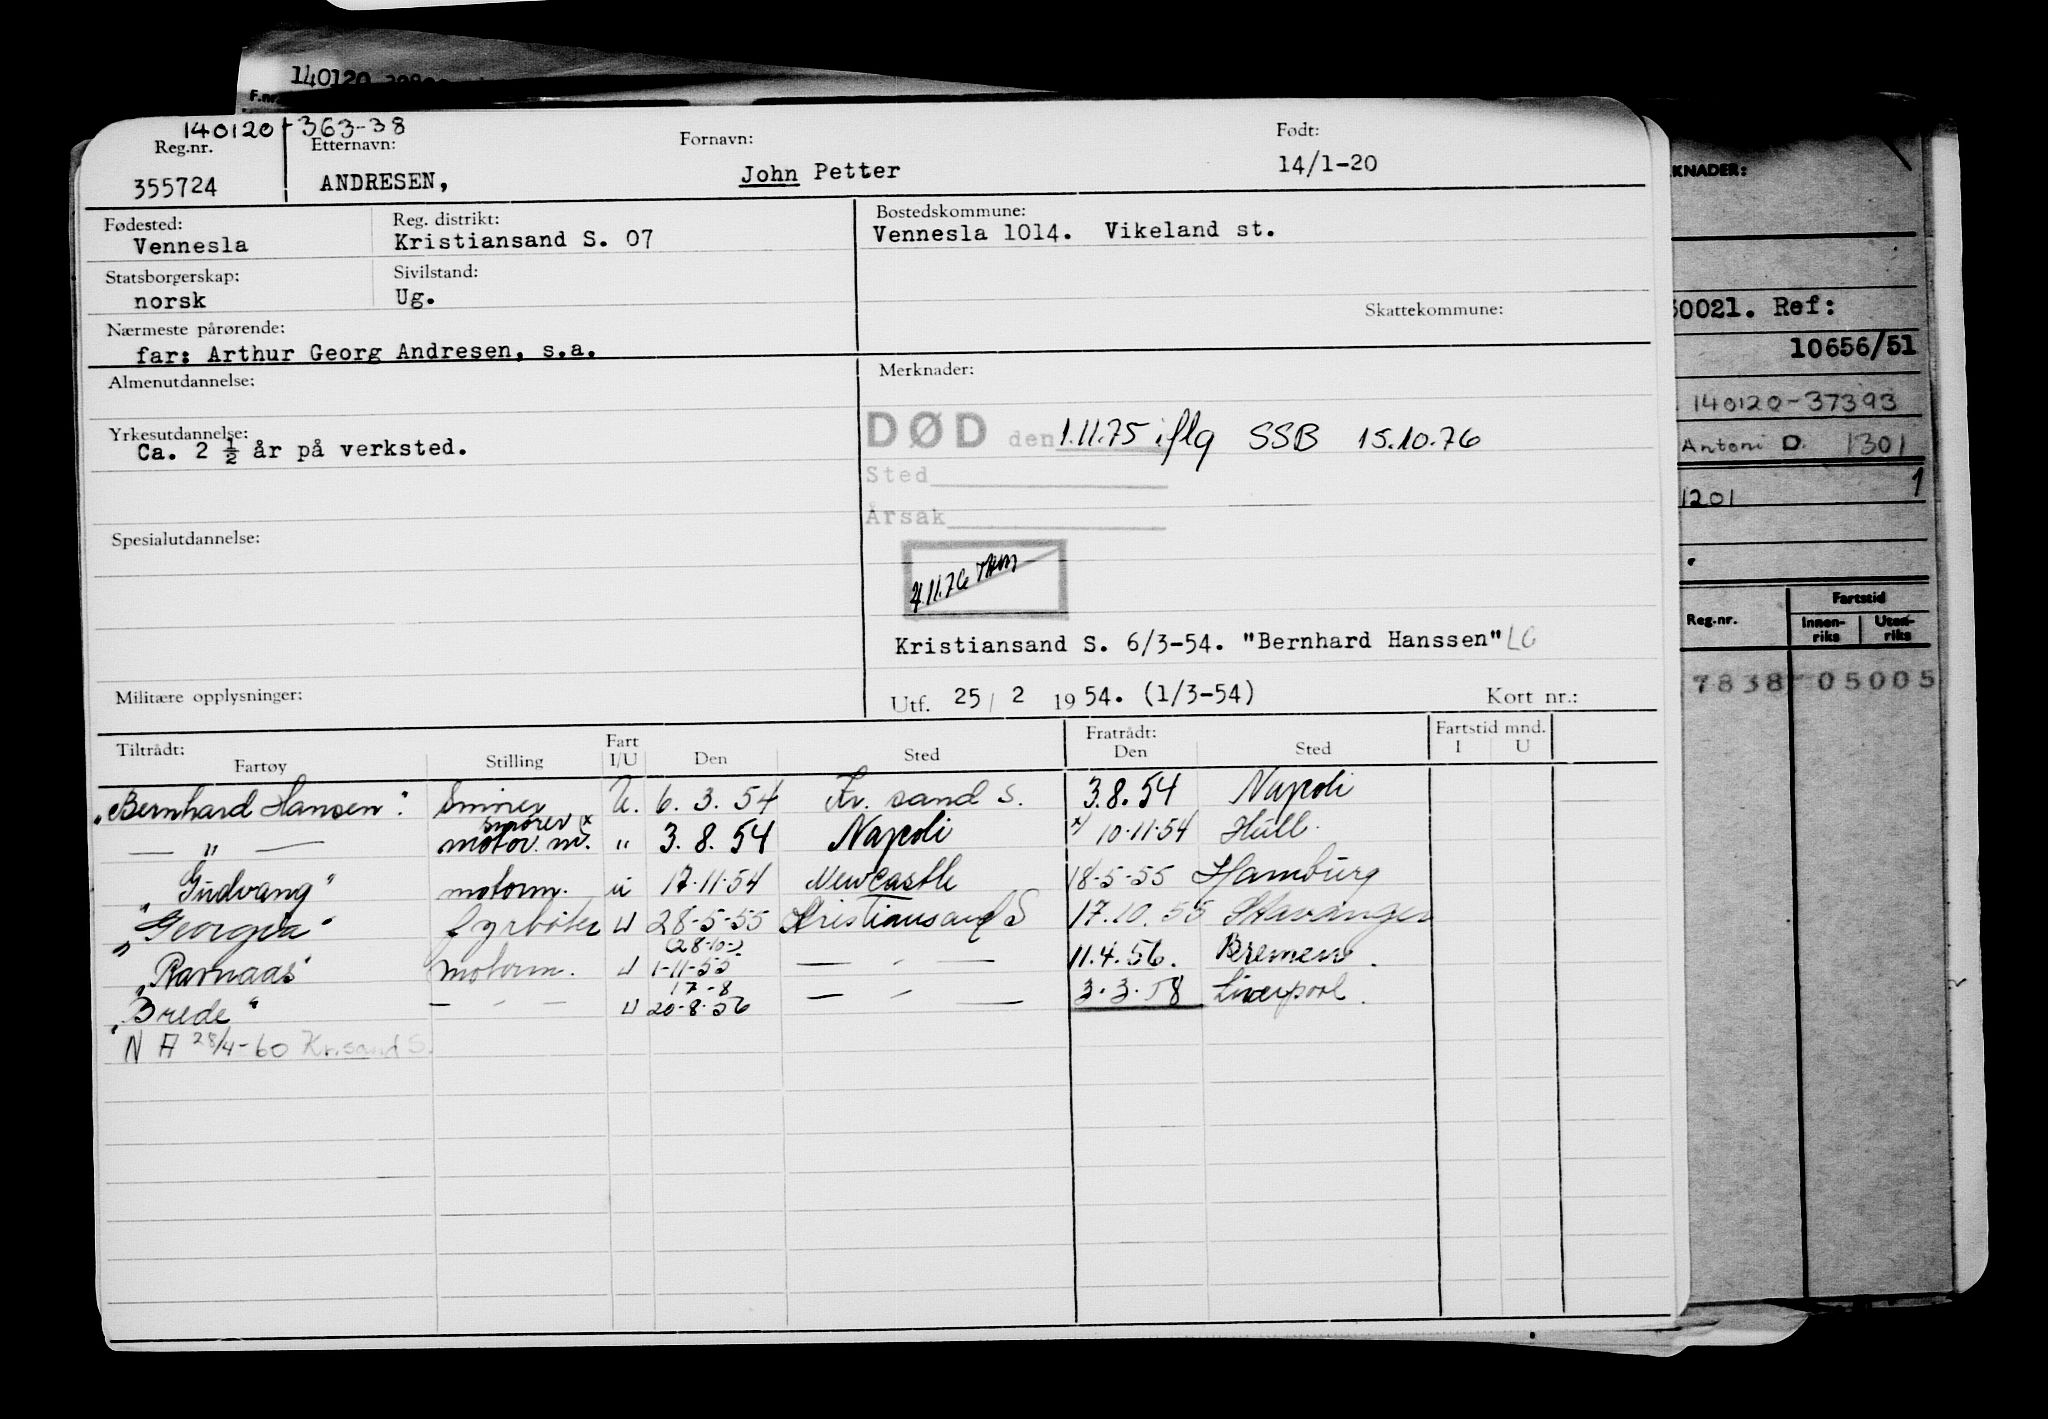 140120
F.nr
140120-363-38
Reg.nr. Etternavn: Fornavn: Født:
355724 ANDRESEN, John Petter 14/1-20
Fødested: Reg. distrikt: Bostedskommune:
Vennesla Kristiansand S. 07 Vennesla 1014. Vikeland st.
Statsborgerskap: Sivilstand:
norsk Ug.
Skattekommune:
Nærmeste pårørende:
far: Arthur Georg Andresen, s.a.
Almenutdannelse: Merknader:
DØD den 1.11.75 iflg SSB 15.10.76
Yrkesutdannelse:
Ca. 2 ½ år på verksted.
Sted
Årsak
Spesialutdannelse:
4.11.76
Kristiansand S. 6/3-54. "Bernhard Hanssen" LG
Militære opplysninger: Utf. 25/2 1954. (1/3-54) Kort nr.:
Tiltrådt: Fart Fratrådt: Fartstid mnd.
Fartøy Stilling I/U Den Sted Den Sted I U
"Bernhard Hansen". Smører U. 6.3.54 Kr. sand S. 3.8.54 Napoli
smører x
— " — motor. m. " 3.8.54 Napoli x) 10.11.54 Hull.
"Gudvang" motorm. u 17.11.54 Newcastle 18-5-55 Hamburg
"Georgia" fyrbøter U 28-5-55 Kristiansand S 17.10.55 Stavanger
(28-10-)
"Ravnaas" motorm. U 1-11-55 — " — 11.4.56. Bremen.
17-8
"Brede" — " — U 20-8-56 — " — 3.3.58 Liverpool.
N A 28/4-60 Kr.sand S.
KNADER:
0021. Ref:
10656/51
140120-37393
Antoni D. 1301
1201 1
Reg.nr. Fartstid
Innen-riks Uten-riks
7838 05005